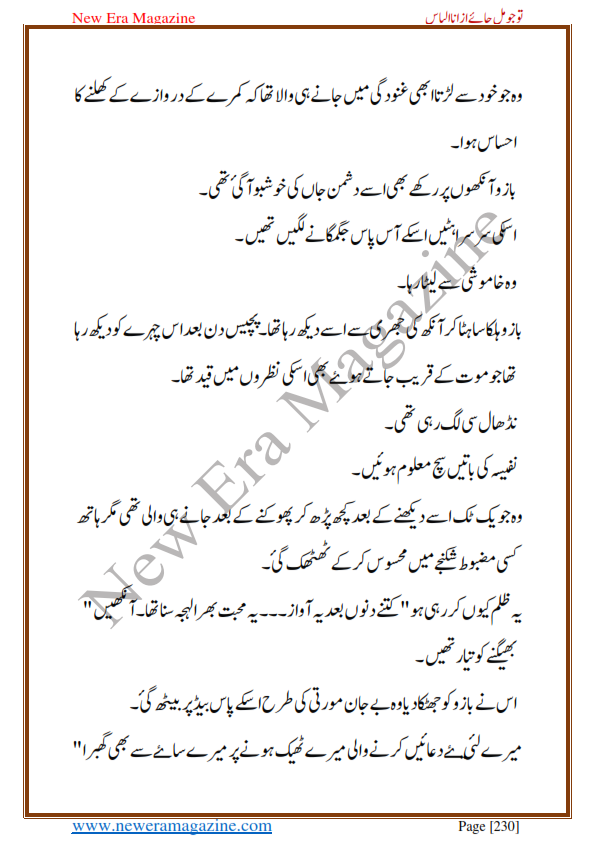 New Era Magazine تو جو مل جائے از انا الیاس
وہ جو خود سے لڑتا ابھی غنودگی میں جانے ہی والا تھا کہ کمرے کے دروازے کے کھلنے کا
احساس ہوا۔
بازو آنکھوں پر رکھے بھی اسے دشمن جاں کی خوشبو آ گئ تھی۔
اسکی سرسراہٹیں اسکے آس پاس جگمگانے لگیں تھیں۔
وہ خاموشی سے لیٹا رہا۔
بازو ہلکا سا ہٹا کر آنکھ کی جھری سے اسے دیکھ رہا تھا۔ پچیس دن بعد اس چہرے کو دیکھ رہا
تھا جو موت کے قریب جاتے ہوئے بھی اسکی نظروں میں قید تھا۔
نڈھال سی لگ رہی تھی۔
نفیسہ کی باتیں سچ معلوم ہوئیں۔
وہ جو یک ٹک اسے دیکھنے کے بعد کچھ پڑھ کر پھوکنے کے بعد جانے ہی والی تھی مگر ہاتھ
کسی مضبوط شکنجے میں محسوس کرکے ٹھٹھک گئ۔
یہ ظلم کیوں کر رہی ہو" کتنے دنوں بعد یہ آواز۔۔۔ یہ محبت بھرا لہجہ سنا تھا۔ آنکھیں "
بھیگنے کو تیار تھیں۔
اس نے بازو کو جھٹکا دیا وہ بے جان مورتی کی طرح اسکے پاس بیڈ پر بیٹھ گئ۔
میرے لئیے دعائیں کرنے والی میرے ٹھیک ہونے پر میرے سائے سے بھی گھبرا "
New Era Magazine
www.neweramagazine.com Page [230]